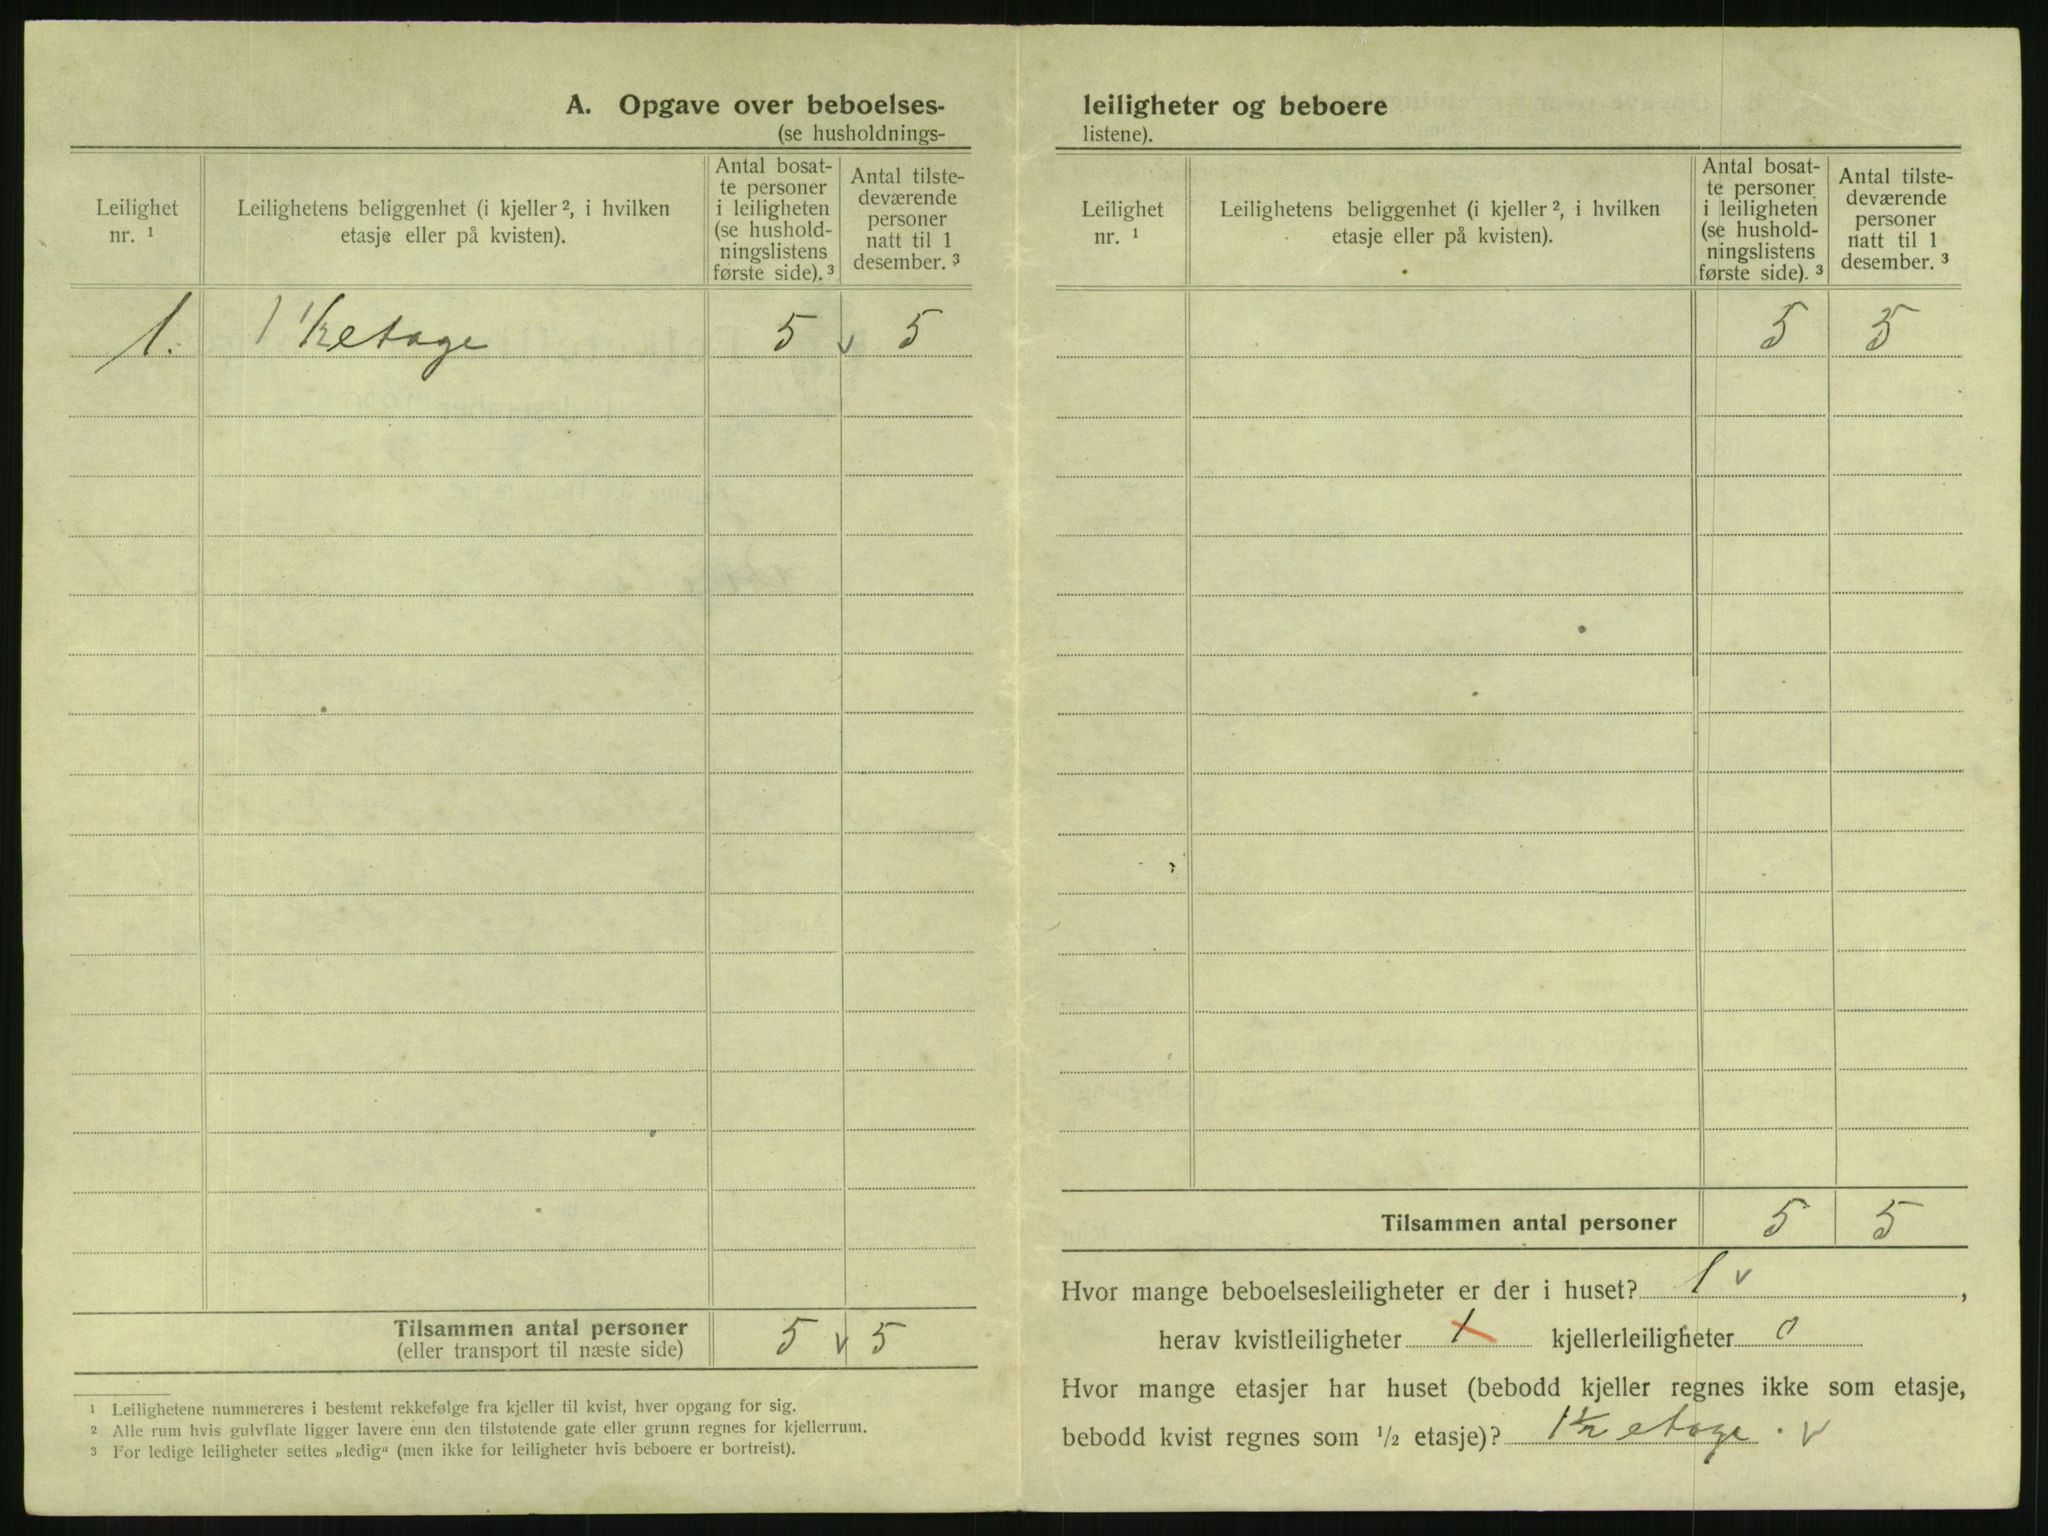 A. Opgave over beboelses-
(se husholdnings-
Leilighet
nr. ¹
Leilighetens beliggenhet (i kjeller ², i hvilken
etasje eller på kvisten).
Antal bosat-
te personer
i leiligheten
(se hushold-
ningslistens
første side). ³
Antal tilste-
deværende
personer
natt til 1
desember. ³
1. 1 1/2 etage 5 v 5
Tilsammen antal personer 5 v 5
(eller transport til næste side)
¹ Leilighetene nummereres i bestemt rekkefølge fra kjeller til kvist, hver opgang for sig.
² Alle rum hvis gulvflate ligger lavere enn den tilstøtende gate eller grunn regnes for kjellerrum.
³ For ledige leiligheter settes „ledig“ (men ikke for leiligheter hvis beboere er bortreist).
leiligheter og beboere
listene).
Leilighet
nr. ¹
Leilighetens beliggenhet (i kjeller ², i hvilken
etasje eller på kvisten).
Antal bosat-
te personer
i leiligheten
(se hushold-
ningslistens
første side). ³
Antal tilste-
deværende
personer
natt til 1
desember. ³
5 5
Tilsammen antal personer 5 5
Hvor mange beboelsesleiligheter er der i huset? 1 v,
herav kvistleiligheter 1 kjellerleiligheter 0
Hvor mange etasjer har huset (bebodd kjeller regnes ikke som etasje,
bebodd kvist regnes som 1/2 etasje)? 1 1/2 etage. v